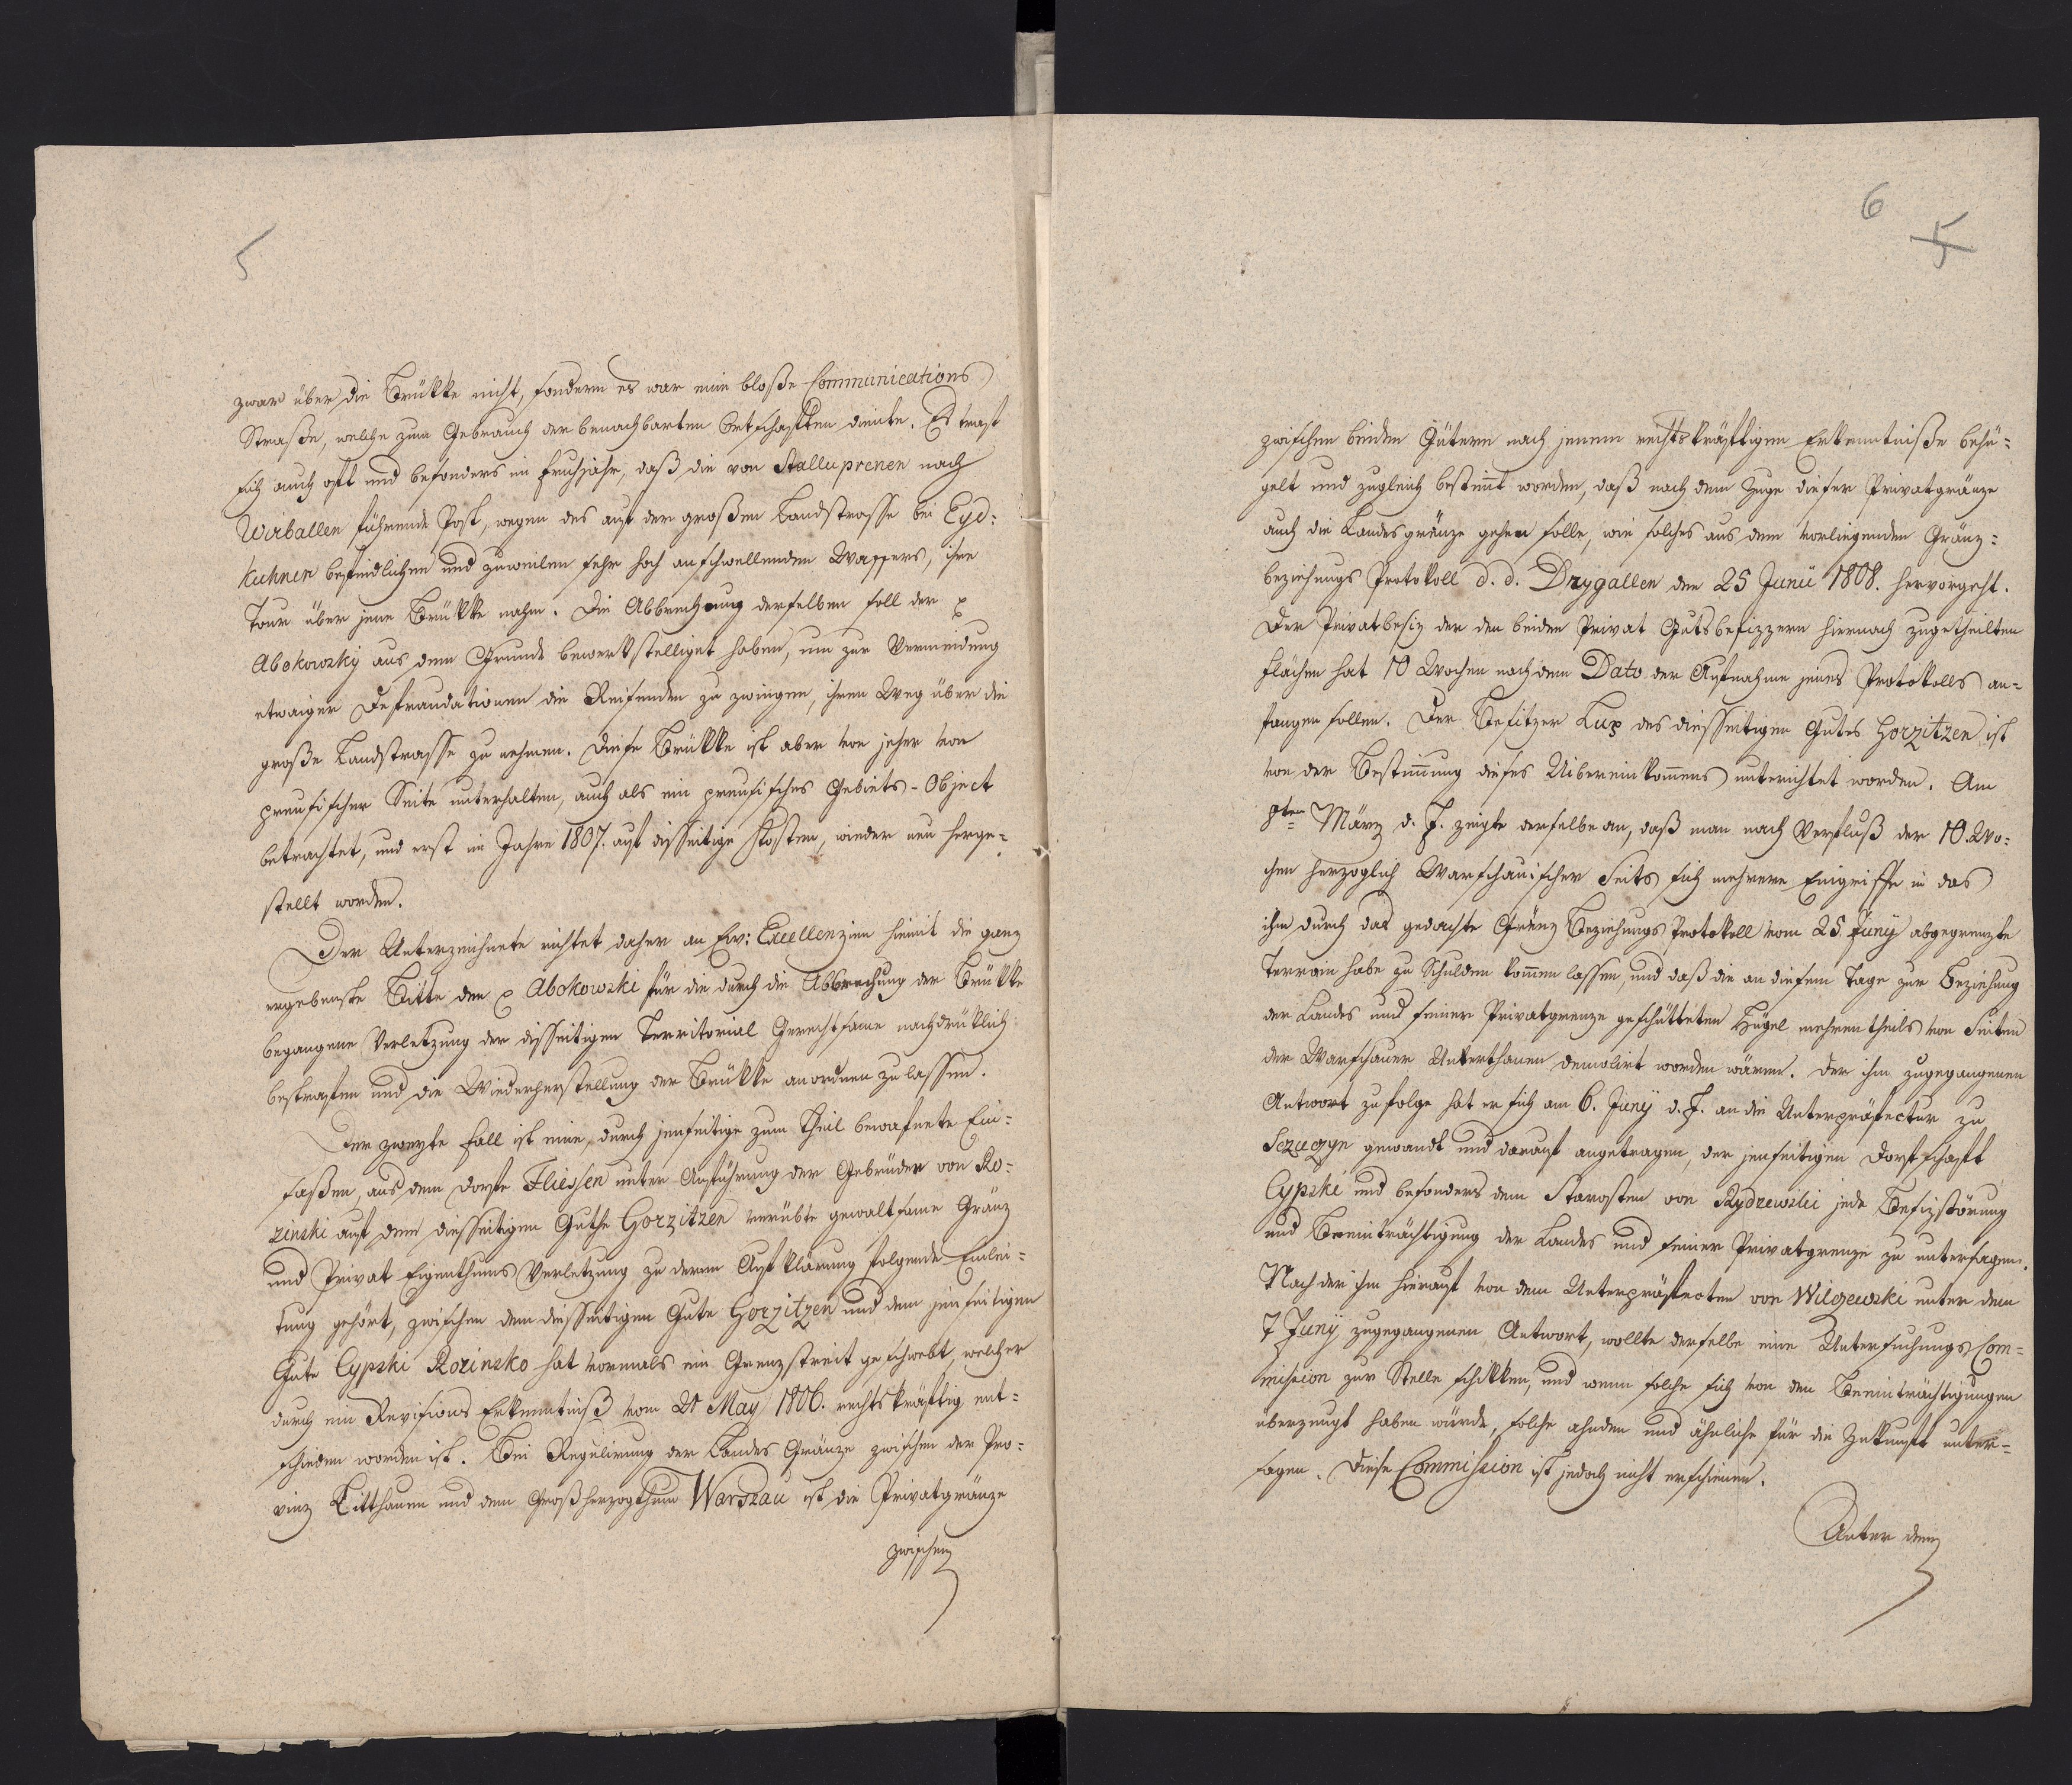 5
zwar über die Brükke nicht, sondern es war eine bloße Communications
Straße, welche zum Gebrauch der benachbarten Ortschaften diente. Es traf
sich auch oft und besonders im Frühjahr, daß die von Stalluprenen nach
Wirballen führende Post, wegen des auf der großen Landstrasse bei Eyd-
kuhnen befindlichen und zuweilen sehr hoch anschwellenden Wassers, ihre
Tour über jene Brükke nahm. Die Abbrechung derselben soll der p
Abokowsky aus dem Grunde bewerkstelliget haben, um zur Vermeidung
etwaiger Defraudationen die Reisenden zu zwingen, ihren Weg über die
große Landstrasse zu nehmen. Diese Brükke ist aber von jeher von
preusischer Seite unterhalten, auch als ein preusisches Gebiets-Object
betrachtet, und erst im Jahre 1807. auf disseitige Kosten, wieder neu herge-
stellt worden.
Der Unterzeichnete richtet daher an Ew: Excellenzien hiemit die ganz
ergebenste Bitte den p Abokowski für die durch die Abbrechung der Brükke
begangene Verletzung der disseitigen Territorial Gerechtsame nachdrüklich
bestrafen und die Wiederherstellung der Brükke anordnen zu lassen.
Der zweyte Fall ist eine, durch jenseitige zum Theil bewafnete Ein-
saßen, aus dem Dorfe Fliessen unter Anführung der Gebrüder von Ro-
zinski auf dem diesseitigen Guthe Gorzitzen verübte gewaltsame Gränz
und Privat Eigenthums Verletzung zu deren Aufklärung folgende Einlei-
tung gehört, zwischen dem diesseitigen Gute Gorzitzen und dem jenseitigen
Gute Cypski Rozinsko hat vormals ein Grenzstreit geschwebt, welcher
durch ein Revisions Erkenntniß vom 21 May 1806. rechtskräftig ent-
schieden worden ist. Bei Regulirung der Landes Gränze zwischen der Pro-
vinz Litthauen und dem Großherzogthum Warszau ist die Privatgränze
zwischen
6
5
zwischen beiden Gütern nach jenem rechtskräftigen Erkenntniße behü-
gelt und zugleich bestimt worden, daß nach dem Zuge dieser Privatgränze
auch die Landesgränze gehen solle, wie solches aus dem vorliegenden Gränz-
beziehungs Protokoll d. d. Drygallen den 25 Junii 1808. hervorgeht.
Der Privatbesiz der den beiden Privat Gutsbesizzern hiernach zugetheilten
Flächen hat 10 Wochen nach dem Dato der Aufnahme jenes Protokolls an-
fangen sollen. Der Besitzer Lux des diesseitigen Gutes Gorzitzen ist
von der Bestimung dieses Uibereinkomens unterichtet worden. Am
8ten März d. J. zeigte derselbe an, daß man nach Verfluß der 10. Wo-
chen herzoglich Warschauischer Seits sich mehrere Eingriffe in das
ihm durch das gedachte Gränz Beziehungs Protokoll vom 25. Juny abgegrenzte
Terrain habe zu Schulden komen lassen, und daß die an diesem Tage zur Beziehung
der Landes und seiner Privatgrenze geschütteten Hügel mehrentheils von Seiten
der Warschauer Unterthanen demolirt worden wären. Der ihm zugegangenen
Antwort zufolge hat er sich am 6. Juny d. J. an die Unterpräfectur zu
Sczuczyn gewandt und darauf angetragen, der jenseitigen Dorfschaft
Cypski und besonders dem Starosten von Rydzewski jede Besizstörung
und Beeinträchtigung der Landes und seiner Privatgrenze zu untersagen.
Nach der ihm hierauf von dem Unterpräfecten von Wilczewski unter dem
7 Juny zugegangenen Antwort, wollte derselbe eine Untersuchungs Com-
mission zur Stelle schikken, und wenn solche sich von den Beeinträchtigungen
überzeugt haben würde, solche ahnden und ähnliche für die Zukunft unter-
sagen. Diese Commission ist jedoch nicht erschienen.
Unter dem